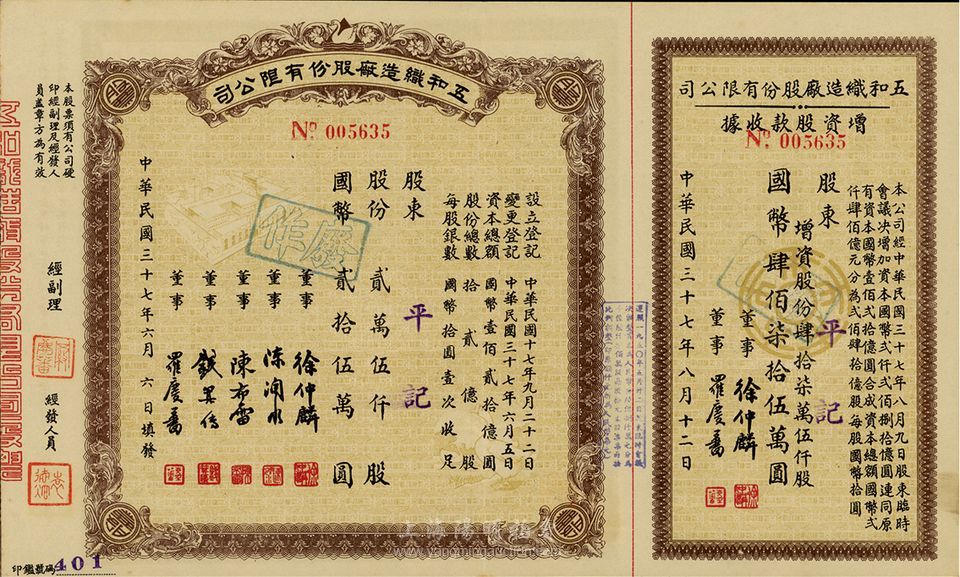 五和織造廠股份有限公司
No 005635
設立登記 中華民國十七年九月二十二日
變更登記 中華民國三十七年六月五日
資本總額 國幣壹佰貳拾億圓
股份總數 拾貳億股
每股銀數 國幣拾圓壹次收足
股東 平記
股份 貳萬伍仟股
國幣 貳拾伍萬圓
董事 徐仲麟
董事
董事 陳布雷
董事
董事 羅慶蕃
中華民國三十七年六月六日填發
廢作
本股票須有公司硬
印經副理及經發人
員蓋章方為有效
經副理
經發人員
印鑑號碼 401
五和織造廠股份有限公司
增資股款收據
No 005635
本公司經中華民國三十七年八月九日股東臨時
會議決增加資本國幣貳仟貳佰捌拾億圓連同原
有資本國幣壹佰貳拾億圓合成資本總額國幣貳
仟肆佰億元分為貳佰肆拾億股每股國幣拾圓
股東 平記
增資股份肆拾柒萬伍仟股
國幣肆佰柒拾伍萬圓
董事 徐仲麟
董事 羅慶蕃
中華民國三十七年八月十二日
上海陽明拍卖
www.yangmingauctions.com